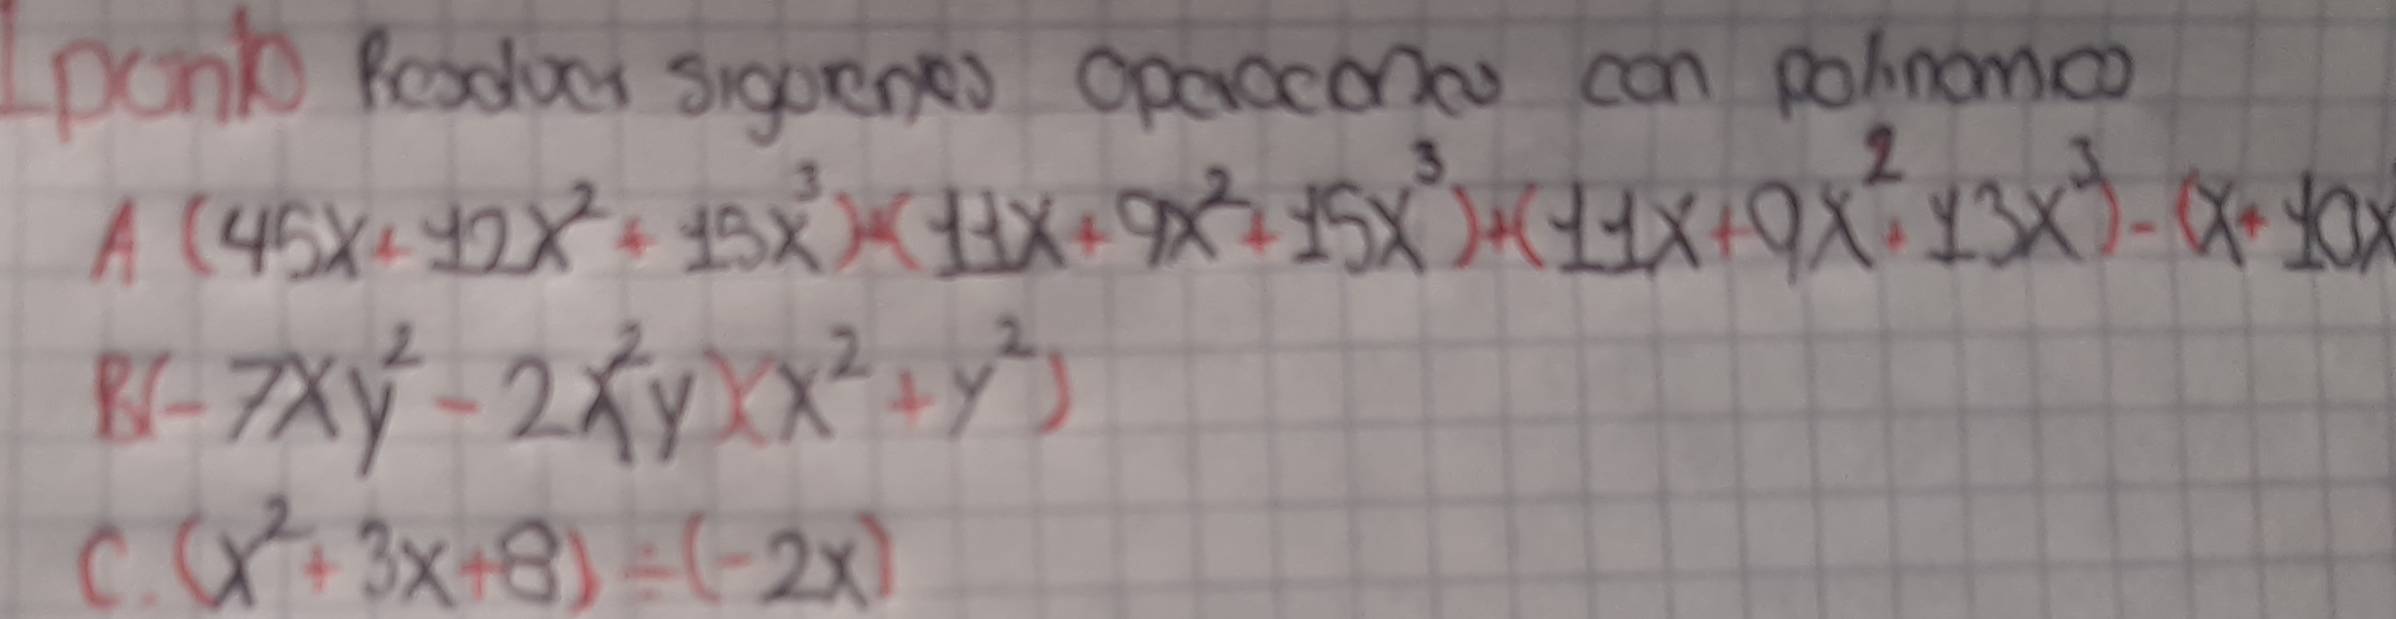 1 punto Resolver siguientes operaciones con polinomios
A (45x + 12x² + 15x³)+(11x + 9x² + 15x³)+(11x + 9x² + 13x³) - (x + 10x
B(- 7xy² - 2x²y)(x² + y²)
C. (x² + 3x + 8) ÷ (-2x)